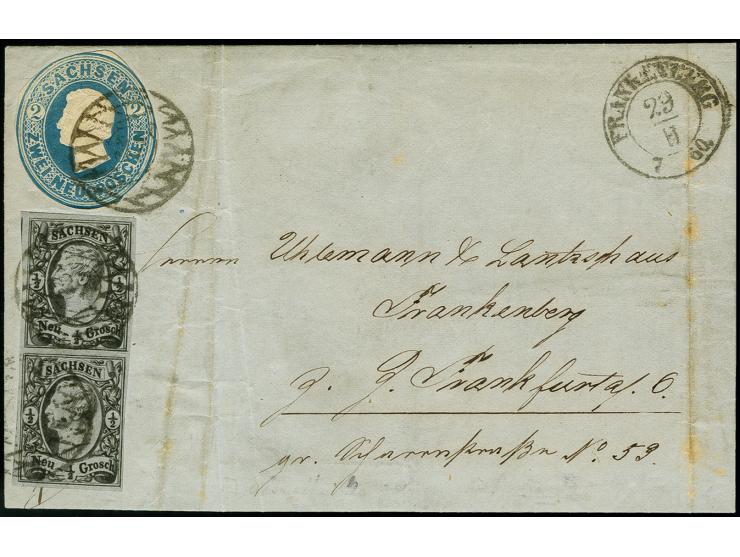 SACHSEN
2 2
ZWEI NEUGROSCHEN
FRANKENBERG
29
II
7 60.
SACHSEN
½ ½
Neu-½ Grosch
SACHSEN
½ ½
Neu-½ Grosch
Herren Uhlemann & Lantzschaus
Frankenberg
z. Z. Frankfurt a/. O.
gr. Scharrnstraße No. 53